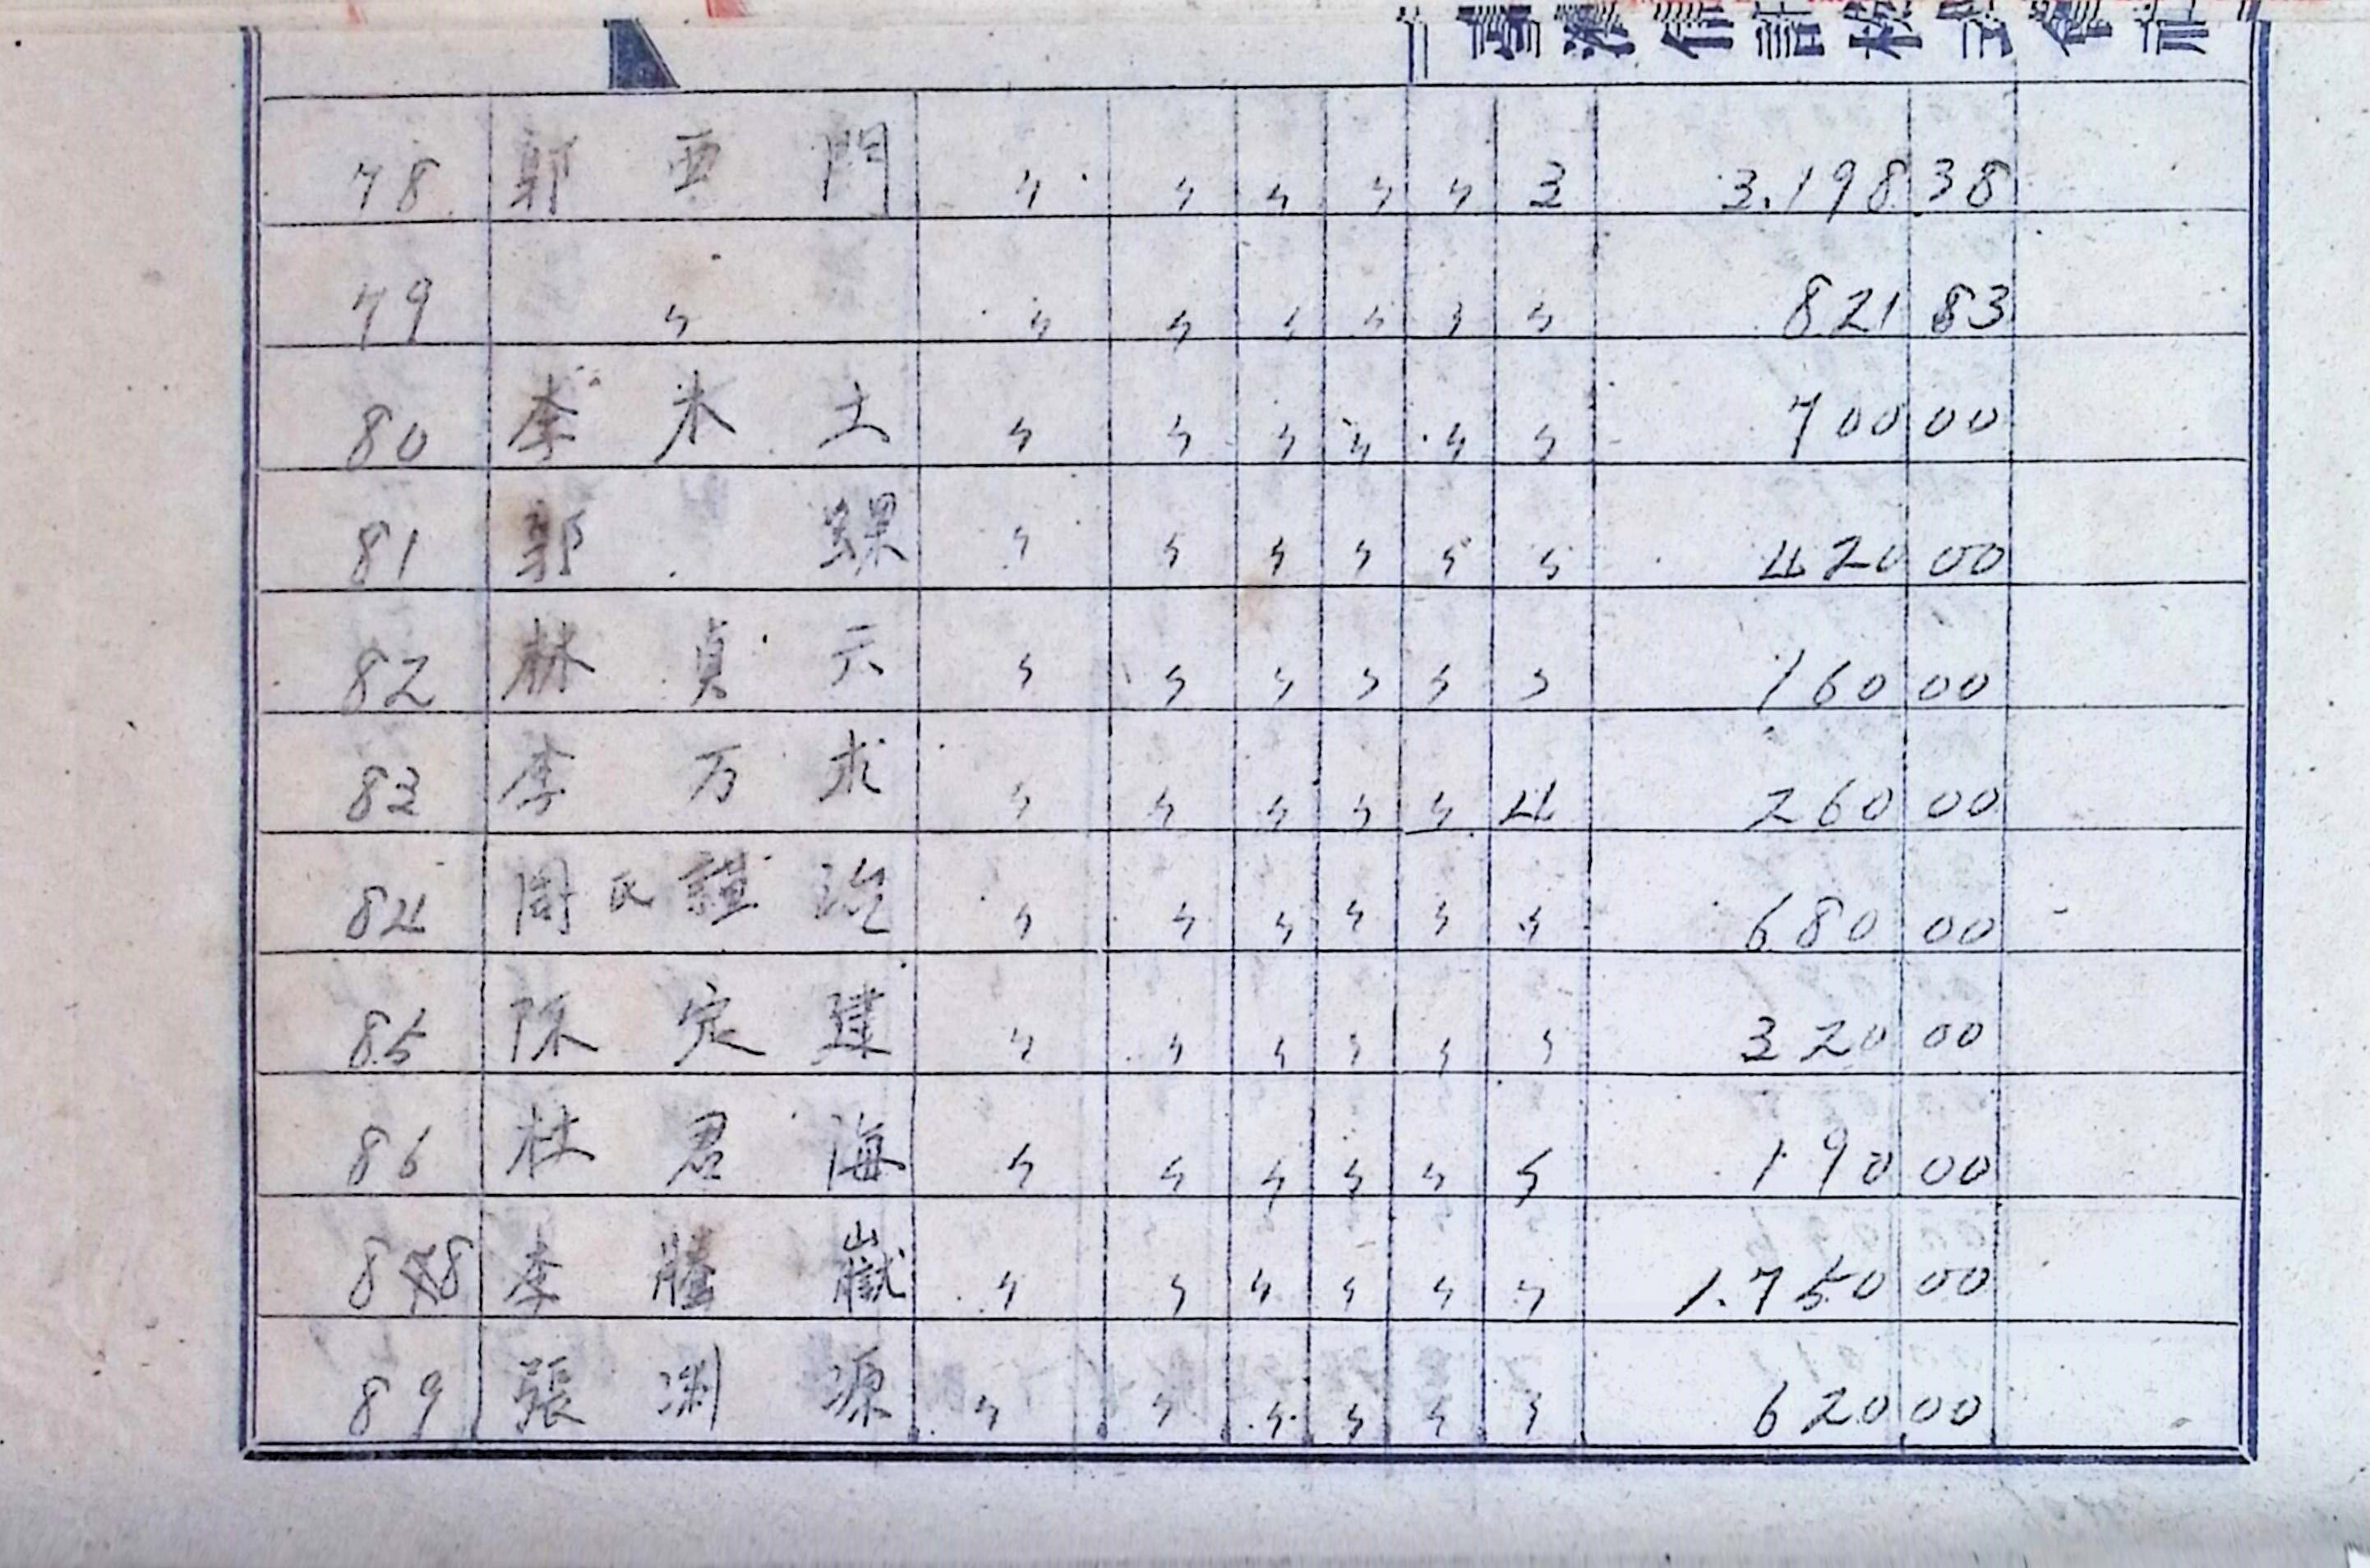 78 郭西門 〃 〃 〃 〃 〃 3 3.198 38
79 〃 〃 〃 〃 〃 〃 〃 821 83
80 李木土 〃 〃 〃 〃 〃 〃 700 00
81 郭 〃 〃 〃 〃 〃 〃 420 00
82 林貞示 〃 〃 〃 〃 〃 〃 160 00
83 李万求 〃 〃 〃 〃 〃 4 260 00
84 周氏謹治 〃 〃 〃 〃 〃 〃 680 00
85 陳定建 〃 〃 〃 〃 〃 〃 320 00
86 杜君海 〃 〃 〃 〃 〃 5 190 00
88 李騰嶽 〃 〃 〃 〃 〃 〃 1.750 00
89 張渊源 〃 〃 〃 〃 〃 〃 620 00